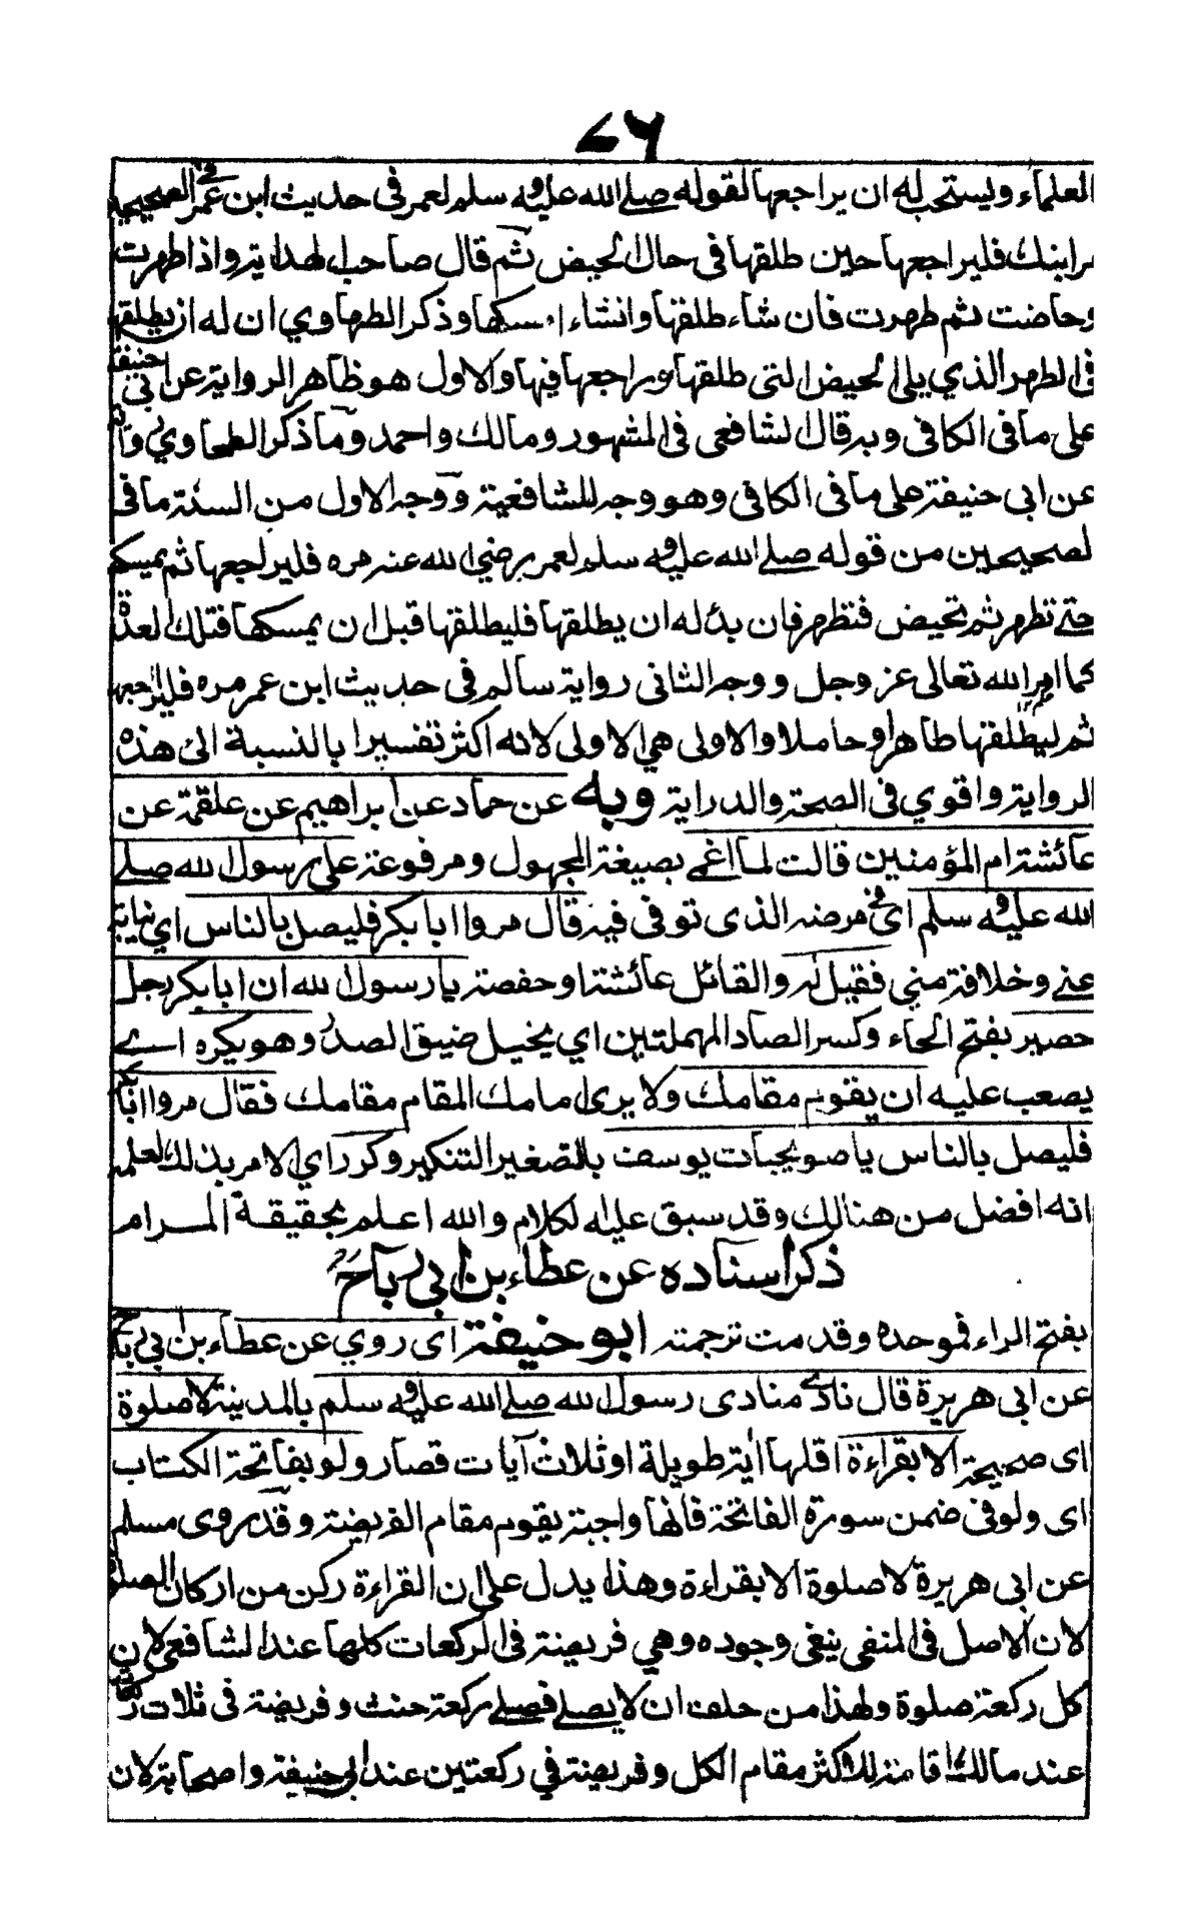 ٧٦
العلماء ويستحب له ان يراجعها لقوله صلى الله عليه وسلم لعمر في حديث ابن عمر في الصحيحين
مر ابنك فليراجعها حين طلقها في حال الحيض ثم قال صاحب الهداية واذا طهرت
وحاضت ثم طهرت فان شاء طلقها وان شاء امسكها وذكر الطحاوي ان له ان يطلقها
في الطهر الذي يلي الحيض التي طلقها وراجعها فيها والاول هو ظاهر الرواية عن ابي حنيفة
على ما في الكافي وبه قال الشافعي في المشهور ومالك واحمد وما ذكر الطحاوي
عن ابي حنيفة على ما في الكافي وهو وجه للشافعية ووجه الاول من السنة ما في
الصحيحين من قوله صلى الله عليه وسلم لعمر رضي الله عنه مره فليراجعها ثم يمسكها
حتى تطهر ثم تحيض فتطهر فان بدا له ان يطلقها فليطلقها قبل ان يمسكها فتلك العدة
كما امر الله تعالى عز وجل ووجه الثاني رواية سالم في حديث ابن عمر مره فليراجعها
ثم ليطلقها طاهرا او حاملا والاولى هي الاولى لانه اكثر تفسيرا بالنسبة الى هذه
الرواية واقوي في الصحة والدراية وبه عن حماد عن ابراهيم عن علقمة عن
عائشة ام المؤمنين قالت لما اغمي بصيغة المجهول ومرفوعة على رسول الله صلى
الله عليه وسلم اي في مرضه الذي توفي فيه قال مروا ابا بكر فليصل بالناس اي نيابة
عني وخلافة مني فقيل له والقائل عائشة او حفصة يا رسول الله ان ابا بكر رجل
حصير بفتح الحاء وكسر الصاد المهملتين اي يخيل ضيق الصدر وهو يكره اي
يصعب عليه ان يقوم مقامك ولا يرى امامك المقام مقامك فقال مروا ابا بكر
فليصل بالناس يا صويحبات يوسف بالتصغير التنكير وكرر اي الامر بذلك لعلمه
انه افضل من هنالك وقد سبق عليه الكلام والله اعلم بحقيقة المرام
ذكر اسناده عن عطاء بن ابي رباح
بفتح الراء فموحده وقد مت ترجمته ابو حنيفة اي روي عن عطاء بن ابي رباح
عن ابي هريرة قال نادى منادى رسول الله صلى الله عليه وسلم بالمدينة لا صلوة
اى صحيحة الا بقراءة اقلها اية طويلة او ثلاث آيات قصار ولو بفاتحة الكتاب
اى ولو في ضمن سورة الفاتحة فانها واجبة يقوم مقام الفريضة وقد روى مسلم
عن ابي هريرة لا صلوة الا بقراءة وهذا يدل على ان القراءة ركن من اركان الصلوة
لان الاصل في المنفي نفي وجوده وهي فريضة في الركعات كلها عند الشافعي لان
كل ركعة صلوة ولهذا من حلف ان لا يصلي فصلى ركعة حنث وفريضة في ثلاث ركعات
عند مالك اقامة للاكثر مقام الكل وفريضة في ركعتين عند ابي حنيفة واصحابه لان